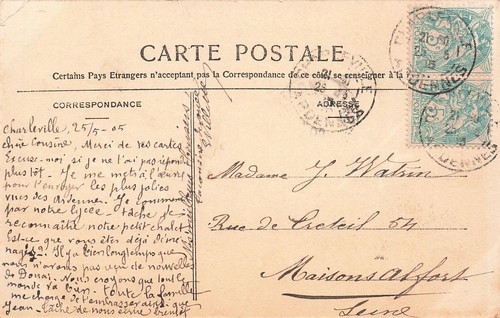 CARTE POSTALE
Certains Pays Etrangers n'acceptant pas la Correspondance de ce côté, se renseigner
CORRESPONDANCE
ADRESSE
Charleville, 25/5-05
chère Cousine, Merci de tes cartes
Excuse-moi si je ne t'ai pas répondu
plus tôt. Je me mets à l'œuvre
pour t'envoyer les plus jolies
vues des Ardenne. Je commence
par notre Lycée. Tâche de
reconnaître notre petit chalet
Est-ce que vous êtes déjà d'emé-
nagés? Il y a bien longtemps que
nous n'avons pas reçu de nouvelles
de Douai. Nous croyons que tout
monde va bien. Toute la famille
me charge de t'embrasser ainsi que
Jean. Tâche de nous écrire bientôt
Madame J. Watrin
Rue de Creteil 54
Maisons Alfort
Seine